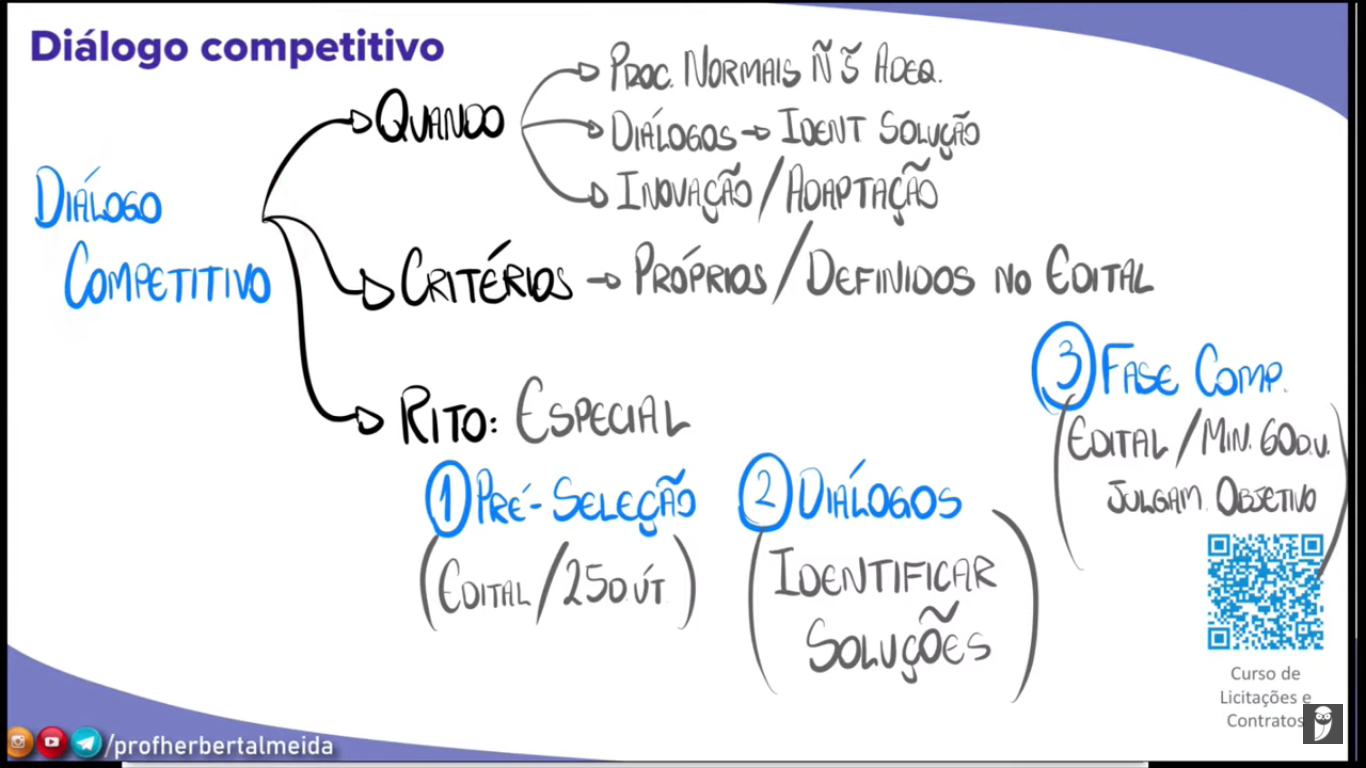 Diálogo competitivo
DIÁLOGO
COMPETITIVO
QUANDO
PROC. NORMAIS Ñ S̃ ADEQ.
DIÁLOGOS → IDENT SOLUÇÃO
INOVAÇÃO / ADAPTAÇÃO
CRITÉRIOS → PRÓPRIOS / DEFINIDOS NO EDITAL
RITO: ESPECIAL
1 PRÉ-SELEÇÃO
(EDITAL / 25D ÚT.)
2 DIÁLOGOS
(IDENTIFICAR
SOLUÇÕES)
3 FASE COMP.
(EDITAL / MIN. 60 D.U.
JULGAM. OBJETIVO)
Curso de
Licitações e
Contratos
/profherbertalmeida